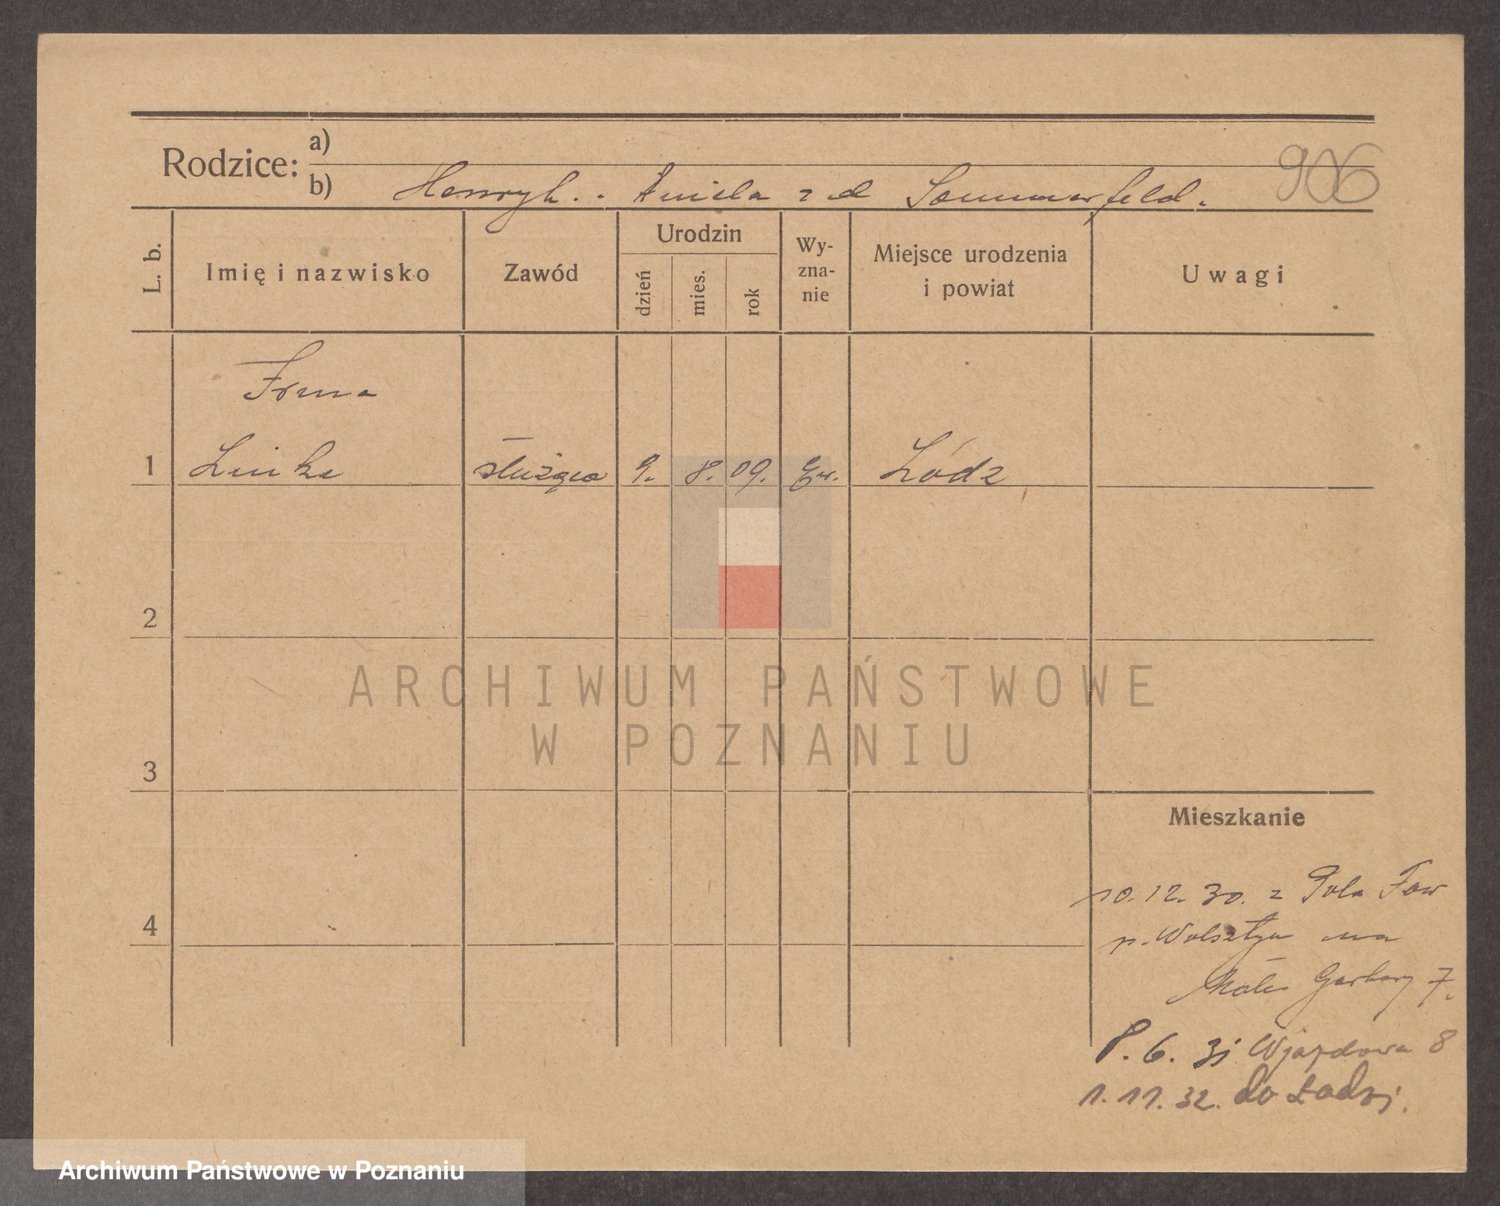 Rodzice:
a)
b) Henryk. . Aniela z d Sommerfeld.
906
L. b.
Imię i nazwisko
Zawód
Urodzin
dzień
mies.
rok
Wy-
zna-
nie
Miejsce urodzenia
i powiat
Uwagi
Irma
1 Linke służąca 9. 8. 09. Ew. Łódz
2
ARCHIWUM PAŃSTWOWE
W POZNANIU
3
Mieszkanie
4
10.12.30. z
p. Wolsztyn na
Małe Garbary 7.
8. 6. 31 Wjazdowa 8
1. 11. 32. do Łodzi.
Archiwum Państwowe w Poznaniu